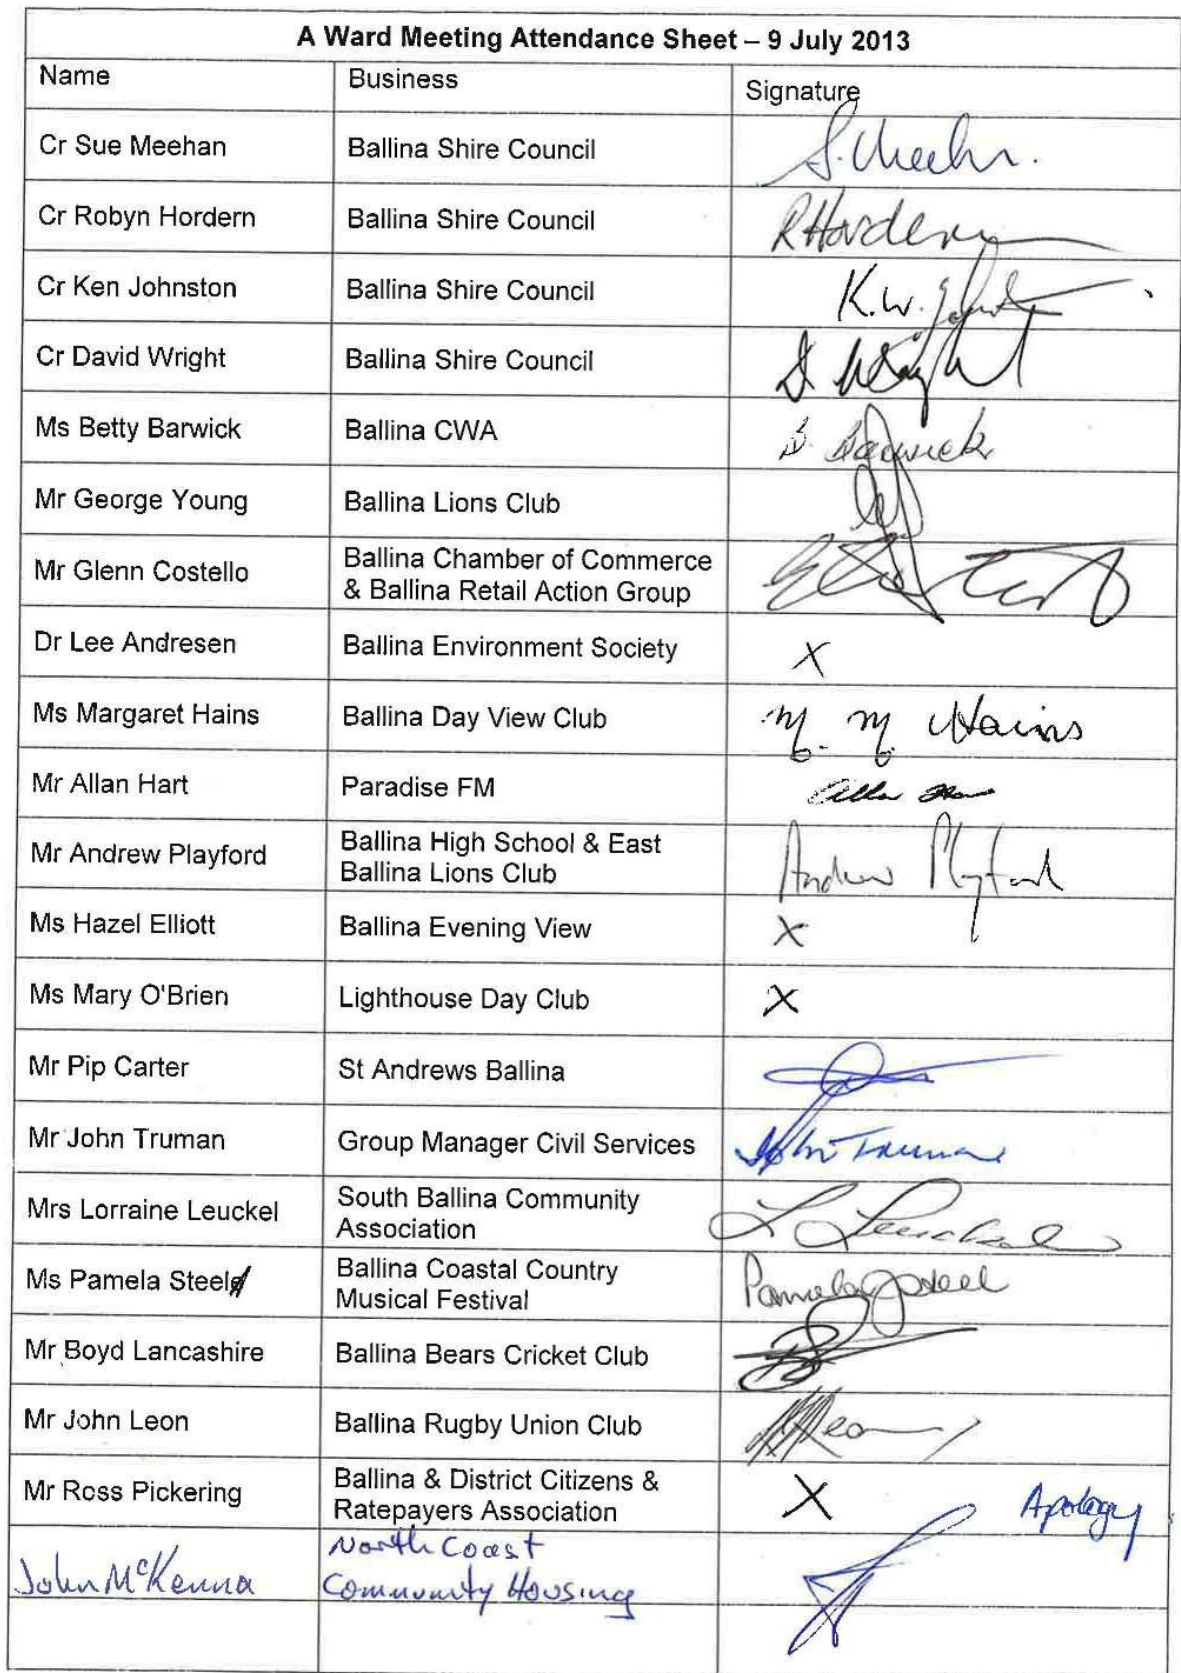 A Ward Meeting Attendance Sheet – 9 July 2013
Name Business Signature
Cr Sue Meehan Ballina Shire Council S. Meehan.
Cr Robyn Hordern Ballina Shire Council R Hordern
Cr Ken Johnston Ballina Shire Council K.W. Johnston
Cr David Wright Ballina Shire Council D Wright
Ms Betty Barwick Ballina CWA B. Barwick
Mr George Young Ballina Lions Club
Mr Glenn Costello Ballina Chamber of Commerce
& Ballina Retail Action Group
Dr Lee Andresen Ballina Environment Society X
Ms Margaret Hains Ballina Day View Club M. M. Hains
Mr Allan Hart Paradise FM Allan
Mr Andrew Playford Ballina High School & East
Ballina Lions Club Andrew Playford
Ms Hazel Elliott Ballina Evening View X
Ms Mary O'Brien Lighthouse Day Club X
Mr Pip Carter St Andrews Ballina
Mr John Truman Group Manager Civil Services John Truman
Mrs Lorraine Leuckel South Ballina Community
Association L Leuckel
Ms Pamela Steel Ballina Coastal Country
Musical Festival Pamela J Steel
Mr Boyd Lancashire Ballina Bears Cricket Club
Mr John Leon Ballina Rugby Union Club
Mr Ross Pickering Ballina & District Citizens &
Ratepayers Association X Apology
John McKenna North Coast
Community Housing